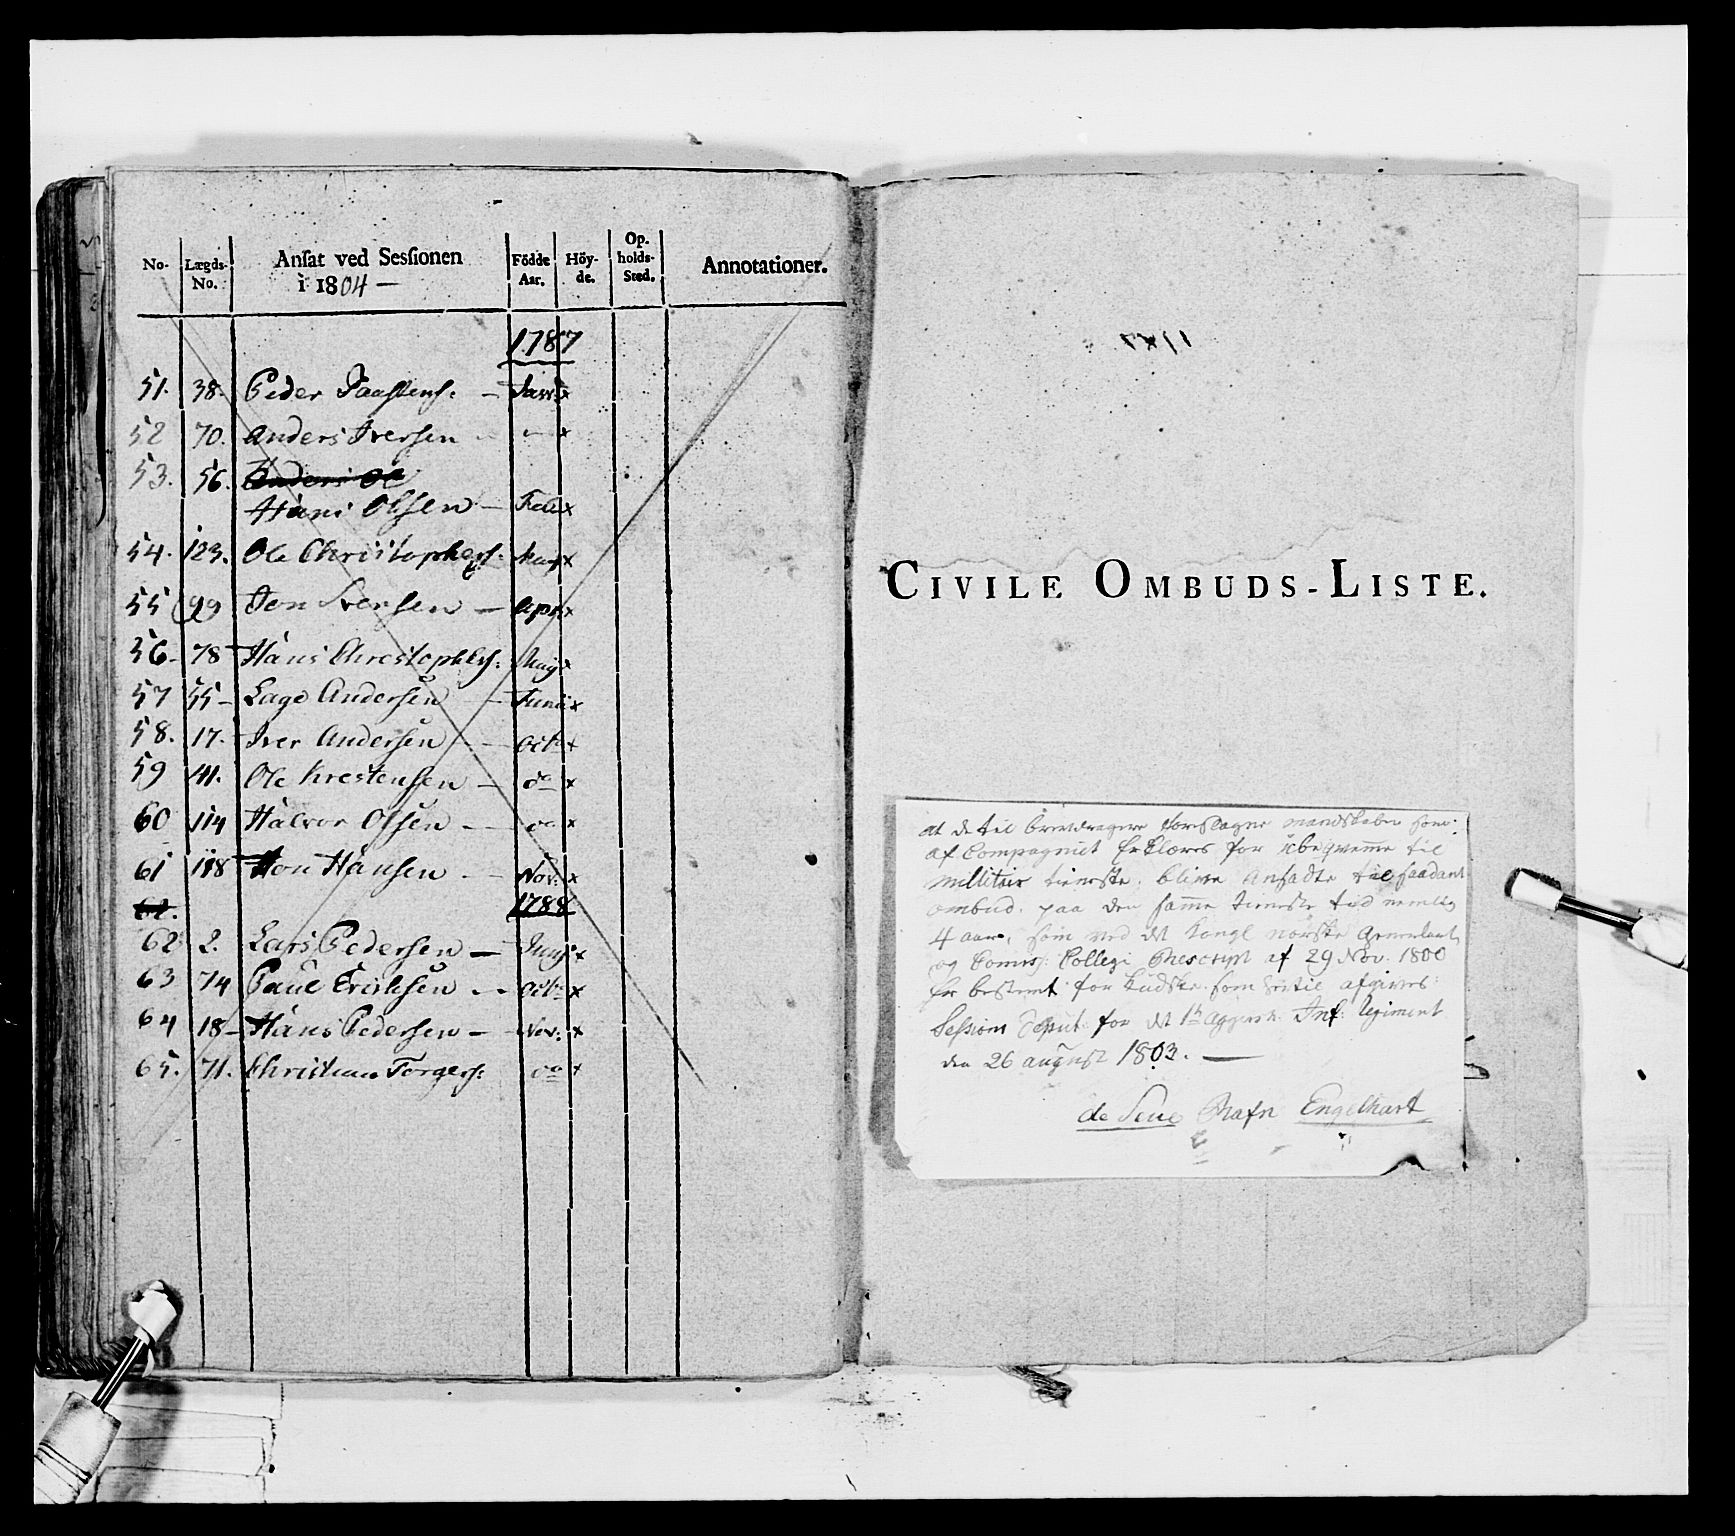 No. Lægds-No. Ansat ved Sessionen i 1804 — Födde Aar. Höy-de. Op-holds-Sted. Annotationer.
1787
51. 38. Peder Paastens. — Janr. x
52 70. Anders Iversen - - x
53. 56. Anders Ol
Hans Olsen — Feb x
54. 123. Ole Christophers: Marj x
55 99 Jon Iversen — Apr. x
56. 78 Hans Christophers: Maij x
57 55 — Lage Andersen — Junii x
58. 17. Iver Andersen — Octb x
59 41. Ole Krestensen — do x
60 114 Halvor Olsen — do x
61 118 Jon Hansen — Nov: x
62. 1788
62 2. Lars Pedersen — Junij x
63 74 Paul Erichsen - - Octb x
64 18 — Hans Pedersen — Nov: x
65. 71. Christian Torgers: do x
CIVILE OMBUDS-LISTE.
at de til brevdragere foreslagne mandskaber som
af Compagniet Erklæres for ubeqvemme til
militair tieneste, blive Ansadte til saadant
ombud. paa den samme tieneste tiid nemlig
4 aar, som ved det kongl norske Generalitets
og Comiss: Collegi Rescript af 29 Nov. 1800
Er bestemt for kudske som hertil afgives
Sessions Deput: for det 1te Aggersh: Inf: Regiment
den 26 august 1803. —
de Seue Rafn Engelhart